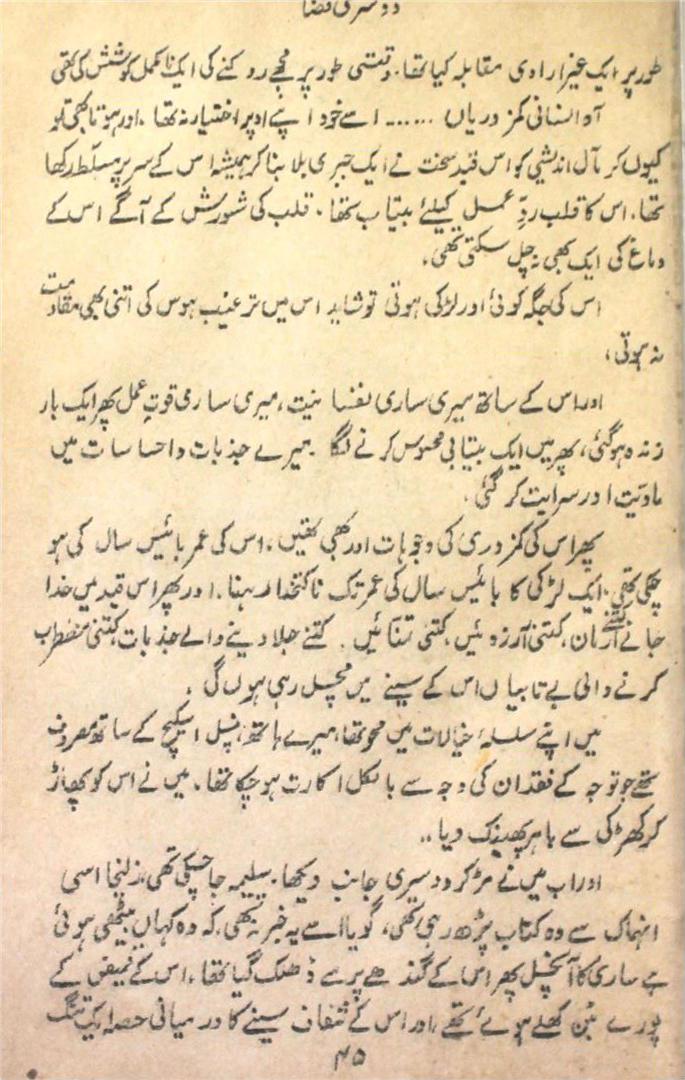 دوسری قضا
طور پر ایک غیر ارادی مقابلہ کیا تھا۔ وقتی طور پر مجھے روکنے کی ایک نامکمل کوشش کی تھی
آہ انسانی کمزوریاں ...... اسے خود اپنے اوپر اختیار نہ تھا، اور ہوتا بھی تو
کیوں کر مآل اندیشی کو اس قید سخت نے ایک جبری بلا بنا کر ہمیشہ اس کے سر پر مسلّط رکھا
تھا، اس کا قلب ردِّ عمل کیلئے بیتاب تھا۔ قلب کی شورش کے آگے اس کے
دماغ کی ایک بھی نہ چل سکتی تھی۔
اس کی جگہ کوئی اور لڑکی ہوتی تو شاید اس میں ترغیب ہوس کی اتنی بھی مقاومت
نہ ہوتی،
اور اس کے ساتھ میری ساری نفسانیت، میری ساری قوتِ عمل پھر ایک بار
زندہ ہو گئی، پھر میں ایک بیتابی محسوس کرنے لگا۔ میرے جذبات و احساسات میں
مادیّت اور سرایت کر گئی۔
پھر اس کی کمزوری کی وجوہات اور بھی تھیں۔ اس کی عمر بائیس سال کی ہو
چکی تھی۔ ایک لڑکی کا بائیس سال کی عمر تک ناکتخدا رہنا۔ اور پھر اس قید میں خدا
جانے کتنے ارمان، کتنی آرزوئیں، کتنی تمنائیں۔ کتنے جلا دینے والے جذبات، کتنی مضطرب
کرنے والی بے تابیاں اس کے سینے میں مچل رہی ہوں گی۔
میں اپنے سلسلۂ خیالات میں محو تھا، میرے ہاتھ، پنسل اسکیچ کے ساتھ مصروف
تھے جو توجہ کے فقدان کی وجہ سے بالکل اکارت ہو چکا تھا۔ میں نے اس کو پھاڑ
کر کھڑکی سے باہر پھینک دیا۔۔
اور اب میں نے مڑ کر دوسری جانب دیکھا۔ سلیمہ جا چکی تھی، زلیخا اسی
انہماک سے وہ کتاب پڑھ رہی تھی، گویا اسے یہ خبر نہ تھی کہ وہ کہاں بیٹھی ہوئی
ہے ساری کا آنچل پھر اس کے کندھے پر سے ڈھلک گیا تھا، اس کے قمیض کے
پورے بٹن کھلے ہوئے تھے، اور اس کے شفاف سینے کا درمیانی حصہ ایک تنگ
۴۵